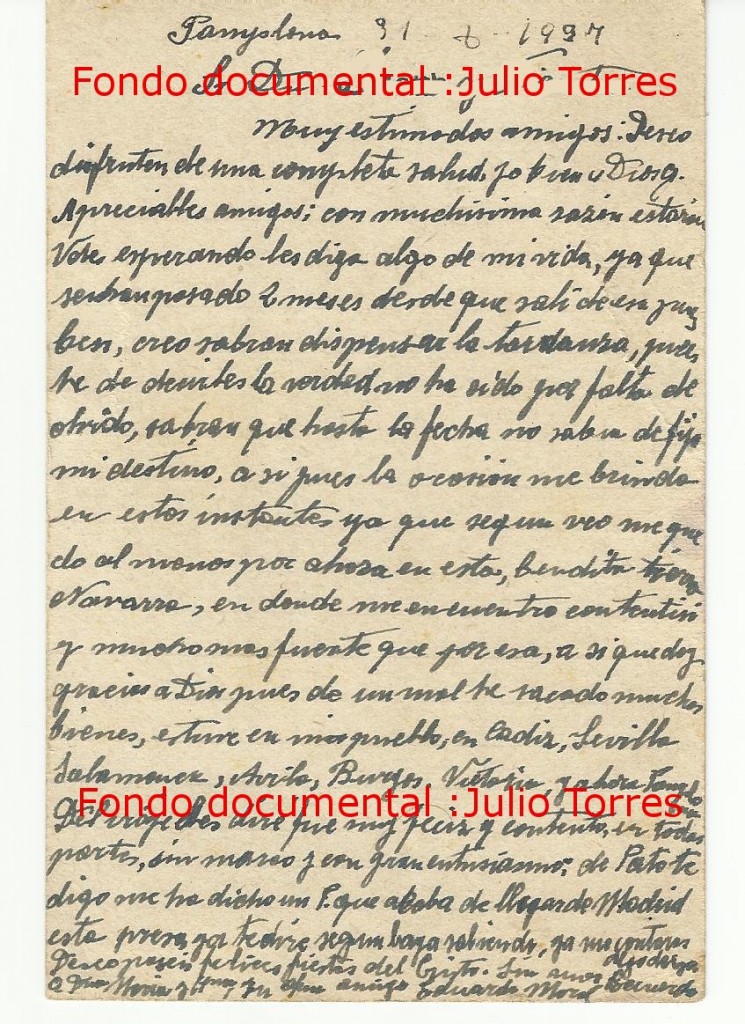 Pamplona 31 - 8 - 1937
Fondo documental :Julio Torres
Sr D.
Muy estimados amigos: Deseo
disfruten de una completa salud, yo bien a Dios g.
Apreciables amigos; con muchisima razon estarán
Vdes esperando les diga algo de mi vida, ya que
se han pasado 2 meses desde que sali de esa
creo sabran dispensar la tardanza, pues
he de decirles la verdad no ha sido por falta de
olvido, sabran que hasta la fecha no sabia de fijo
mi destino, a si pues la ocasion me brinda
en estos instantes ya que segun veo me que
do al menos por ahora en esta, bendita tierra
Navarra, en donde me encuentro contentisi
y mucho mas fuerte que por esa, a si que doy
gracias a Dios pues de un mal he sacado muchos
bienes, estuve en mi pueblo, en Cadiz, Sevilla
Salamanca, Avila, Burgos, Victoria, y ahora
Fondo documental :Julio Torres
Del viaje les dire fue muy feliz y contento, en todas
partes, sin mareo y con gran entusiasmo; de Pato te
digo me ha dicho un P. que acaba de llegar de Madrid
esta presa, ya te dire segun vaya sabiendo, ya me contaras
algo de
Deseo pasen felices fiestas del Cristo. Sin mas Recuerdo
a Dña Maria y su amigo Eduardo